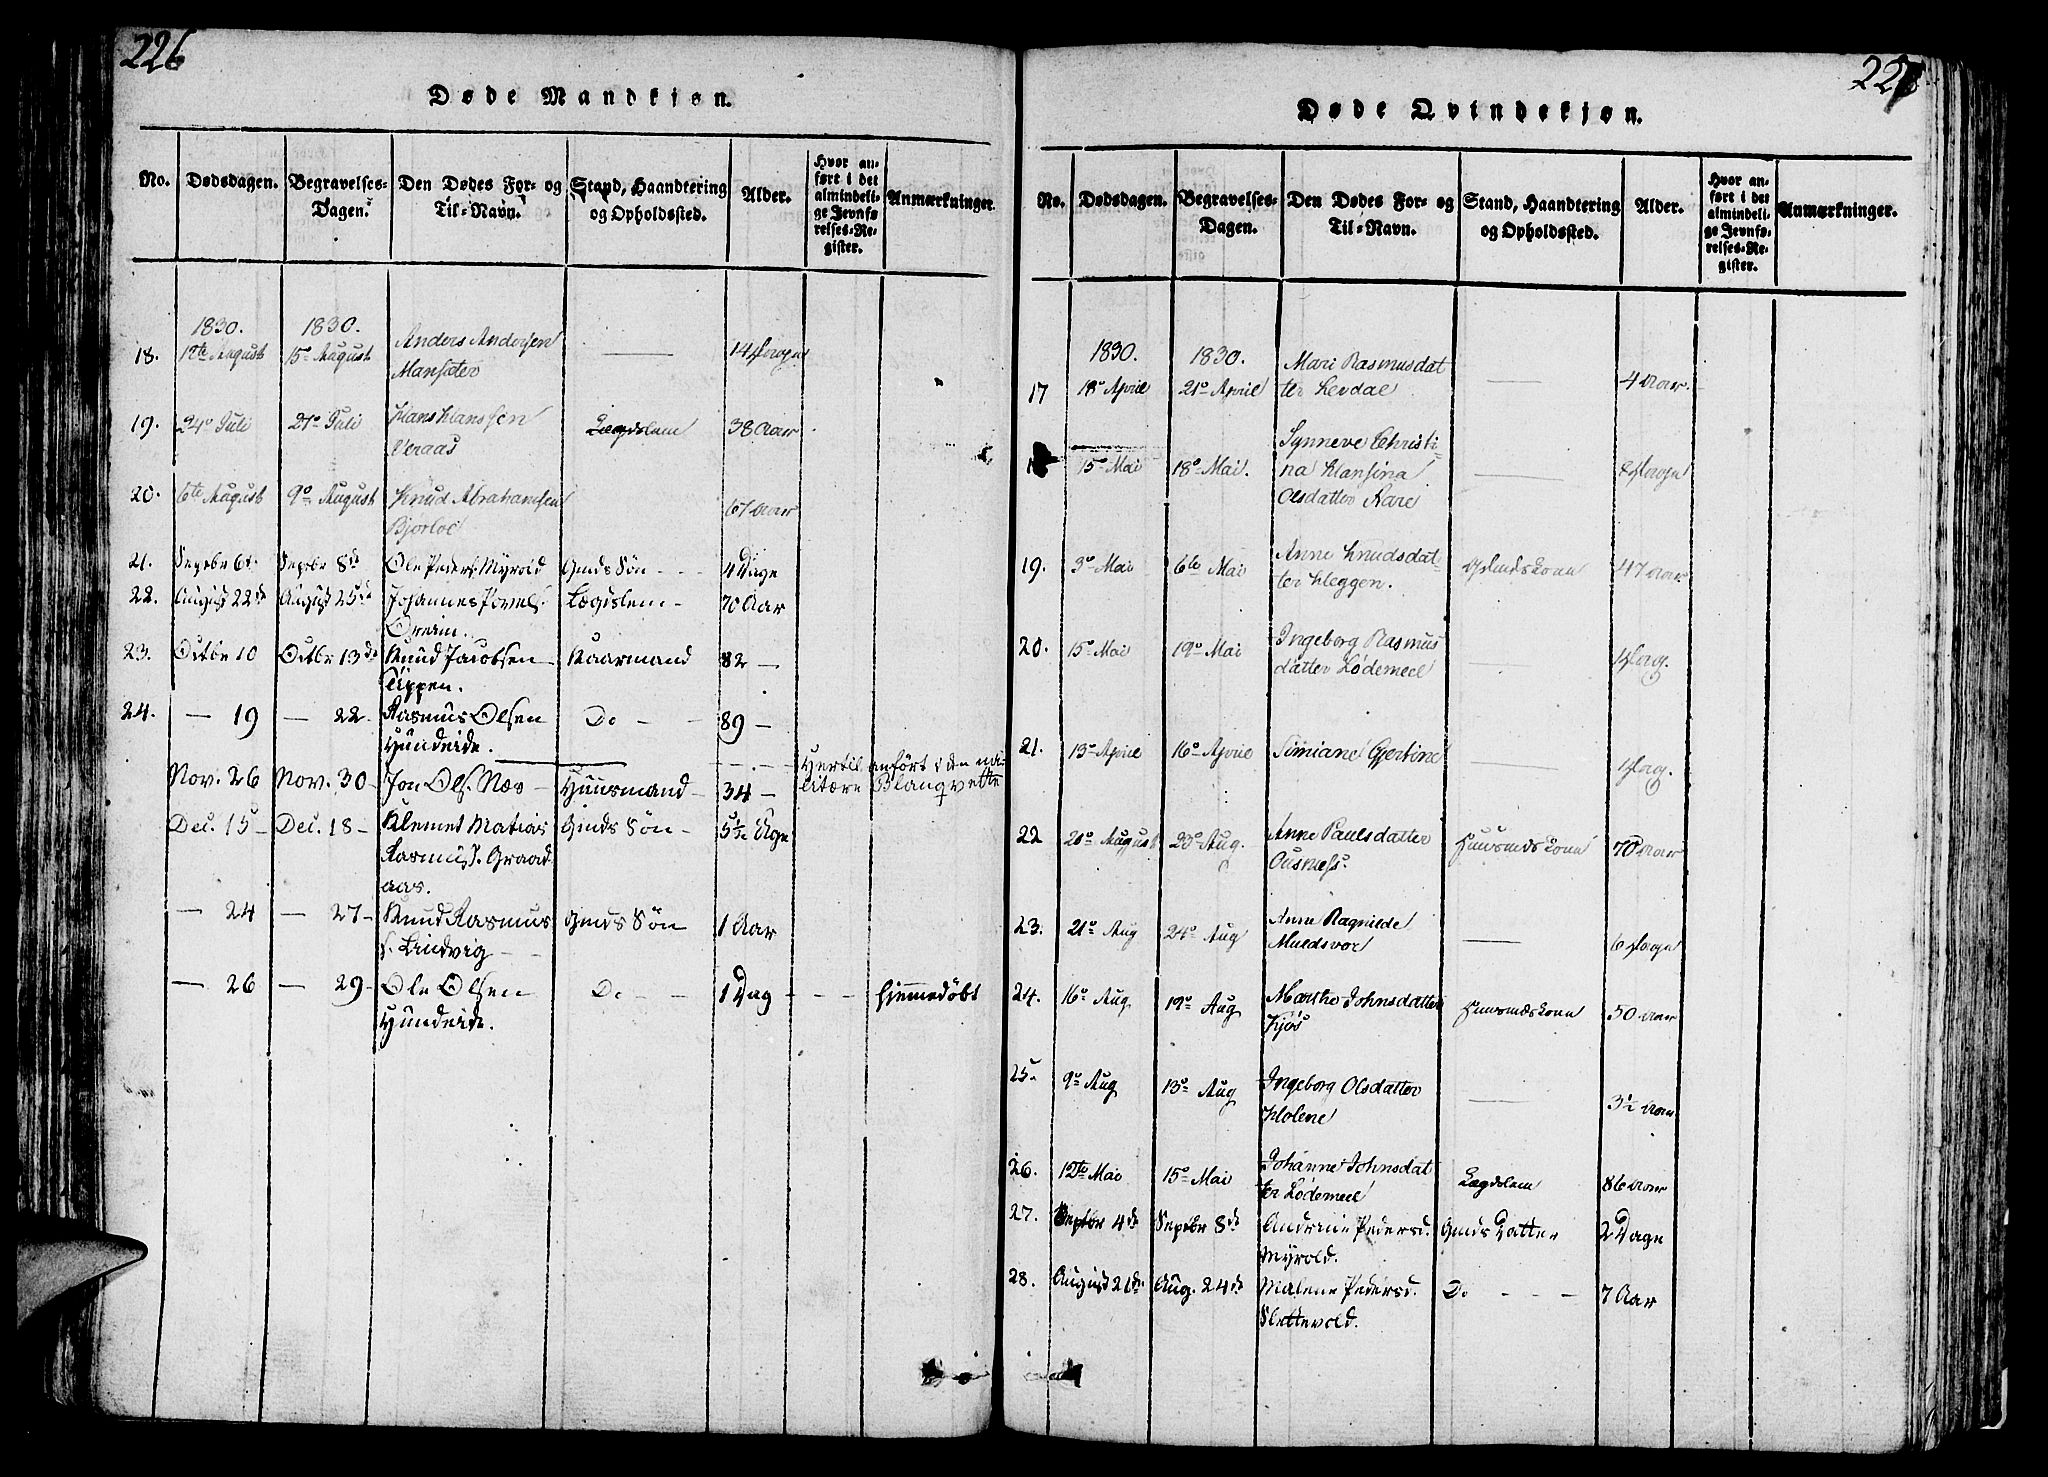 226
Døde Mandkjøn.
No. Dødsdagen. Begravelses-Dagen. Den Dødes For- og Til-Navn. Stand, Haandtering og Opholdssted. Alder. Hvor anført i det almindelige Jevnførelses-Register. Anmærkninger
1830. 1830.
18. 12te August 15de August Anders Andersen
Mansæter — 14
19. 24de Juli 27de Juli Hans Hanssen
Lægdslem 38 Aar
20. 6te August 9de August Knud Abrahamsen
67 Aar
21. Septbr 6te Septbr 8de Ole Peders. Myrold Gmds Søn 4 Dage
22. August 22de August 25de Johannes Povels. Lægdslem 70 Aar
23. Octbr 10 Octbr 13de Knud Jacobsen Kaarmand 82 —
Tippen.
24. — 19 — 22 Rasmus Olsen Do 89 —
Hundeide.
Nov. 26 Nov. 30 Jon Ols. Næs Huusmand 34 — Hertil anført i den militære Blanqvette
Dec. 15 Dec. 18 Klemet Matias Gmds Søn 5½ Uge
Rasmuss. Graad
aas.
— 24 — 27 Knud Rasmus Gmds Søn 1 Aar
s. Lindvig
— 26 — 29 Ole Olsen Do 1 Dag hjemmedøbt
Hundeide.
227
Døde Qvindekjøn.
No. Dødsdagen. Begravelses-Dagen. Den Dødes For- og Til-Navn. Stand, Haandtering og Opholdssted. Alder. Hvor anført i det almindelige Jevnførelses-Register. Anmærkninger.
1830. 1830.
17 18de April 21de April Mari Rasmusdat
ter Levdal — 4 Aar
15de Mai 18de Mai. Synneve Christi-
na Hansina
Olsdatter —
19. 3de Mai 6te Mai Anne Knudsdat-
ter Heggen. 47 Aar
20. 15de Mai 19de Mai Ingeborg Rasmus
datter Lødemeel —
21. 13de April 16de April Simiane Gjertine —
22 20de August 23de Aug. Anne Paulsdatter Huusmdskone 70 Aar
Ousness.
23. 21de Aug 24de Aug Anne Ragnilde
—
24. 16de Aug 19de Aug Marthe Johnsdatter 50 Aar
Kjøs
25. 9de Aug 13de Aug Ingeborg Olsdatter — 3½ Aar
Holene
26. 12te Mai 15de Mai Johanne Johnsdat
ter Lødemeel Lægdslem 86 Aar
27. Septbr 4de Septbr 8de Andrine Pedersd. Gmds Datter 2 Dage
Myrold.
28. August 21de Aug. 24de Malene Pedersd. Do 7 Aar
Slettevold.